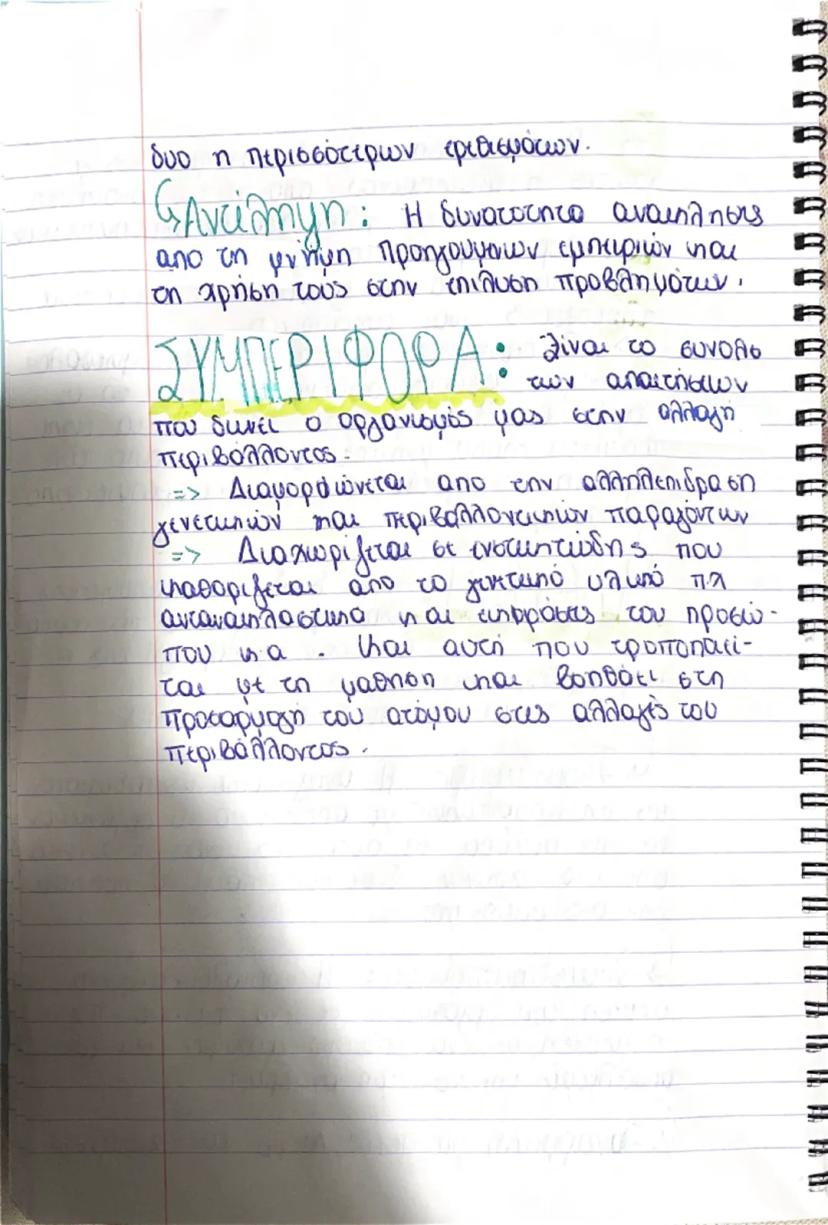 δυο η περισσότερων ερεθισμάτων.
↳Αντίληψη : Η δυνατότητα ανακλησης
απο τη μνήμη προηγουμενων εμπειριών και
τη χρήση τους στην επιλυση προβλημάτων.
ΣΥΜΠΕΡΙΦΟΡΑ: Είναι το συνολο
των απαιτήσεων
που δινει ο οργανισμός μας στην αλλαγή
περιβάλλοντος.
=> Διαμορφώνεται απο την αλληλεπιδραση
γενετικών και περιβαλλοντικών παραγόντων
=> Διαχωρίζεται σε ενστικτώδης που
καθορίζεται απο το γενετικό υλικό πχ
αντανακλαστικα και εκφράσεις του προσώ-
που κ α . Και αυτή που τροποποιεί-
ται με τη μαθηση και βοηθάει στη
προσαρμογή του ατόμου στις αλλαγές του
περιβάλλοντος.